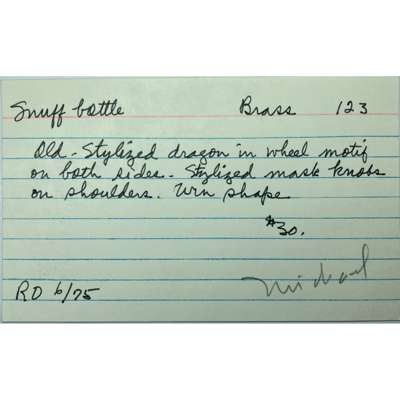 Snuff bottle Brass 123
Old - Stylized dragon in wheel motif
on both sides. Stylized mask knobs
on shoulders. Urn shape
$30.
Michael
RD 6/75